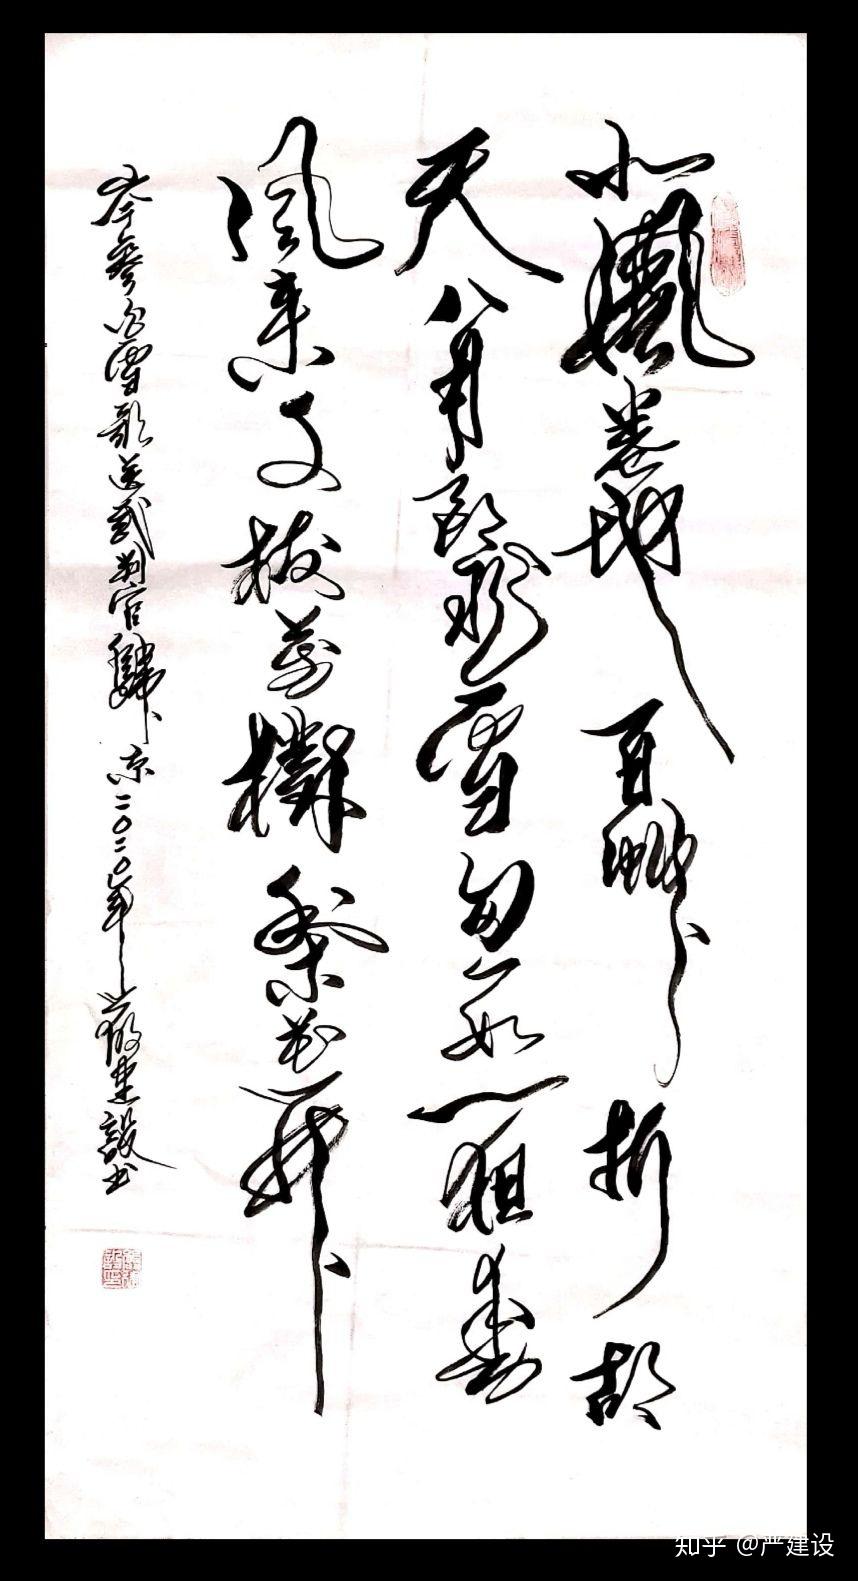 北風卷地百草折胡
天八月即飛雪忽如一夜春
風來千樹萬樹梨花開
岑參白雪歌送武判官歸京二〇二〇年嚴建設书
知乎 @严建设